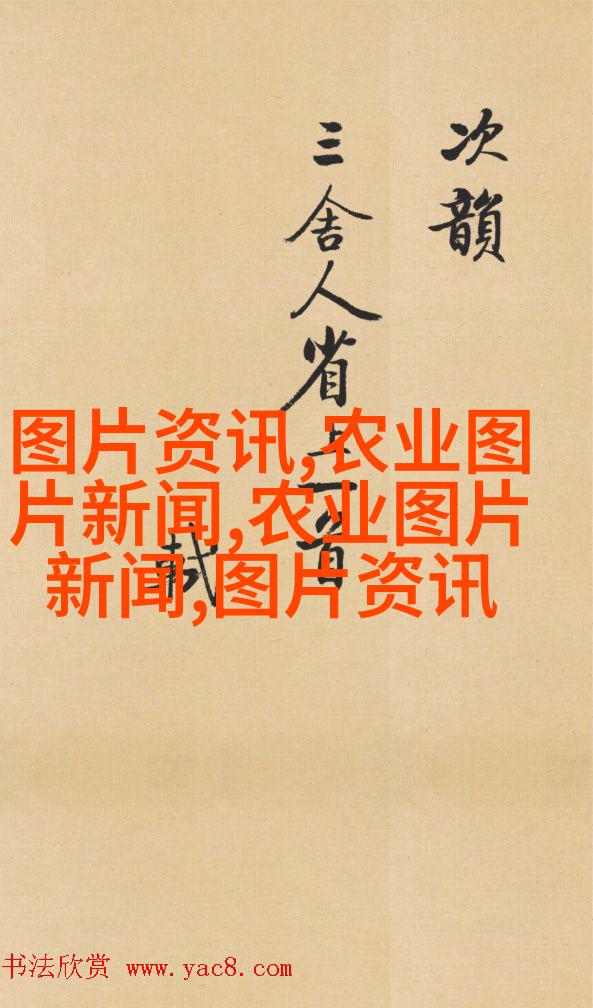 次韻
三舍人省上一首
軾
图片资讯,农业图
片新闻,农业图片
新闻,图片资讯
书法欣赏 www.yac8.com